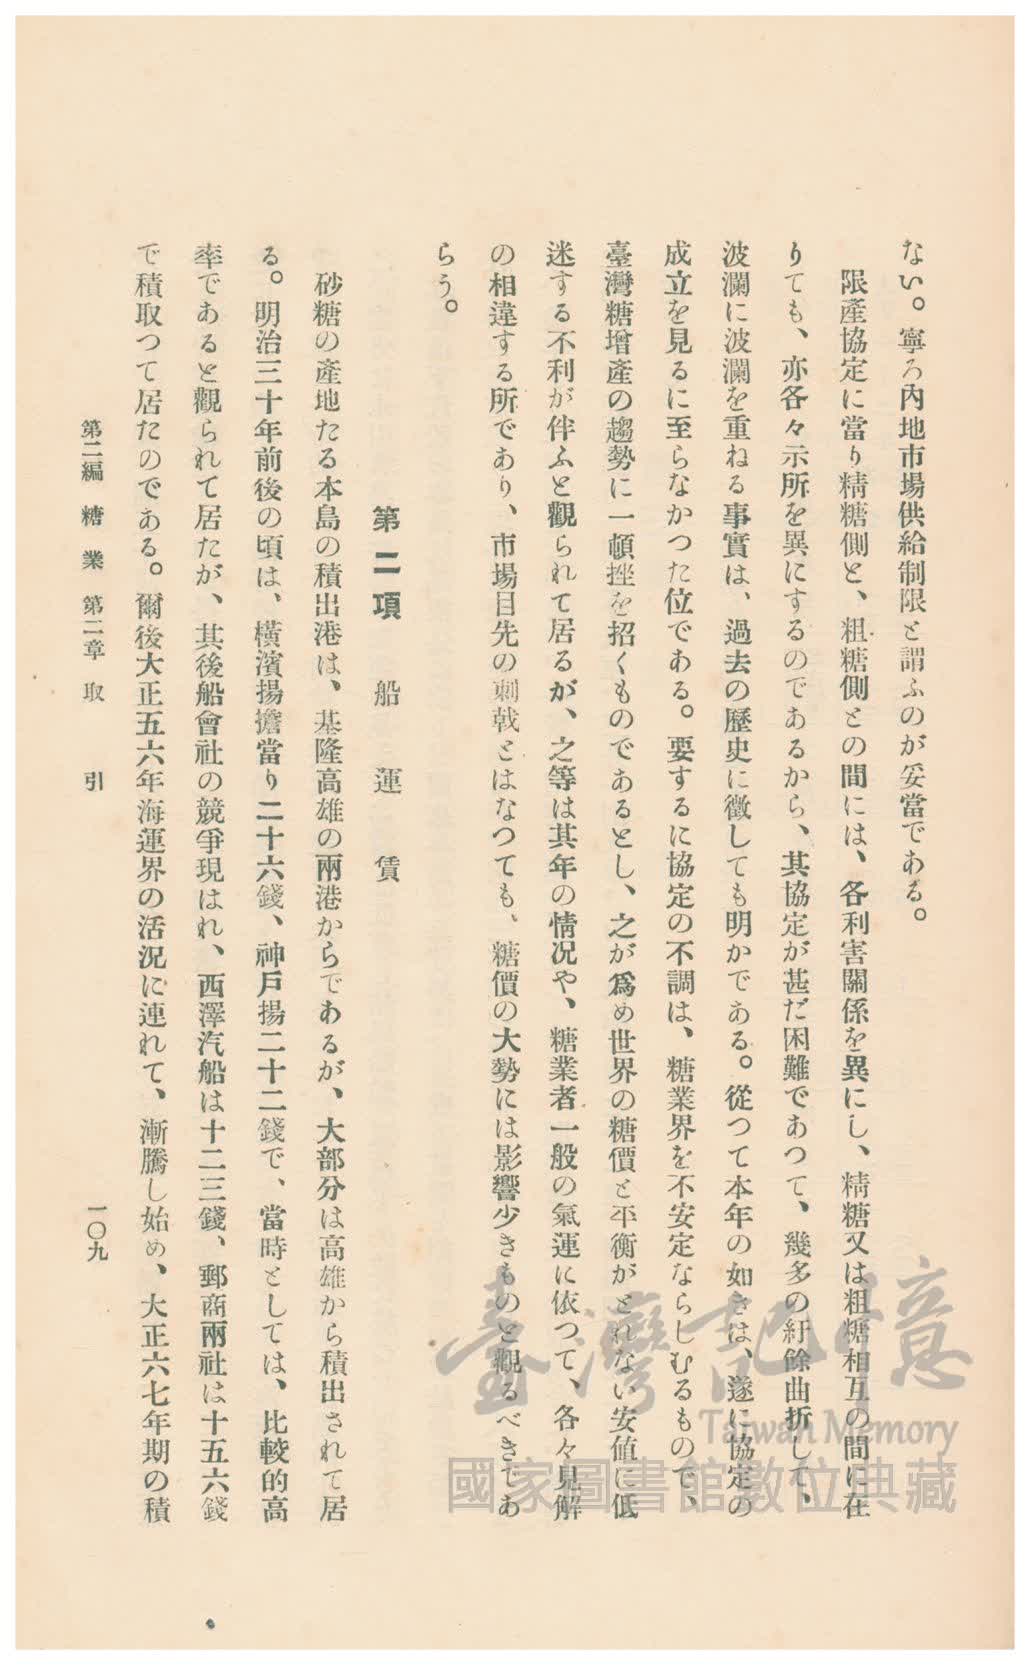 ない。寧ろ內地市場供給制限と謂ふのが妥當である。
限產協定に當り精糖側と、粗糖側との間には、各利害關係を異にし、精糖又は粗糖相互の間に在
りても、亦各々示所を異にするのであるから、其協定が甚だ困難であつて、幾多の紆餘曲折して、
波瀾に波瀾を重ねる事實は、過去の歷史に徵しても明かである。從つて本年の如きは、遂に協定の
成立を見るに至らなかつた位である。要するに協定の不調は、糖業界を不安定ならしむるもので、
臺灣糖增產の趨勢に一頓挫を招くものであるとし、之が爲め世界の糖價と平衡がとれない安値に低
迷する不利が伴ふと觀られて居るが、之等は其年の情況や、糖業者一般の氣運に依つて、各々見解
の相違する所であり、市場目先の刺戟とはなつても、糖價の大勢には影響少きものと觀るべきであ
らう。
第二項 船運賃
砂糖の產地たる本島の積出港は、基隆高雄の兩港からであるが、大部分は高雄から積出されて居
る。明治三十年前後の頃は、橫濱揚擔當り二十六錢、神戶揚二十二錢で、當時としては、比較的高
率であると觀られて居たが、其後船會社の競爭現はれ、西澤汽船は十二三錢、郵商兩社は十五六錢
で積取つて居たのである。爾後大正五六年海運界の活況に連れて、漸騰し始め、大正六七年期の積
第二編 糖業 第二章 取引
一〇九
臺灣記憶
Taiwan Memory
國家圖書館數位典藏